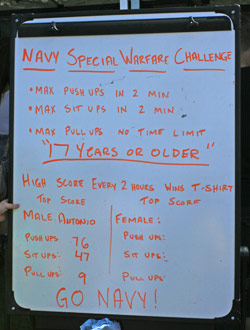 NAVY SPECIAL WARFARE CHALLENGE
• MAX PUSH UPS IN 2 MIN
• MAX SIT UPS IN 2 MIN
• MAX PULL UPS NO TIME LIMIT
"17 YEARS OR OLDER"
HIGH SCORE EVERY 2 HOURS WINS T-SHIRT
TOP SCORE TOP SCORE
MALE ANTONIO FEMALE:
PUSH UPS: 76 PUSH UPS:
SIT UPS: 47 SIT UPS:
PULL UPS: 9 PULL UPS:
GO NAVY!